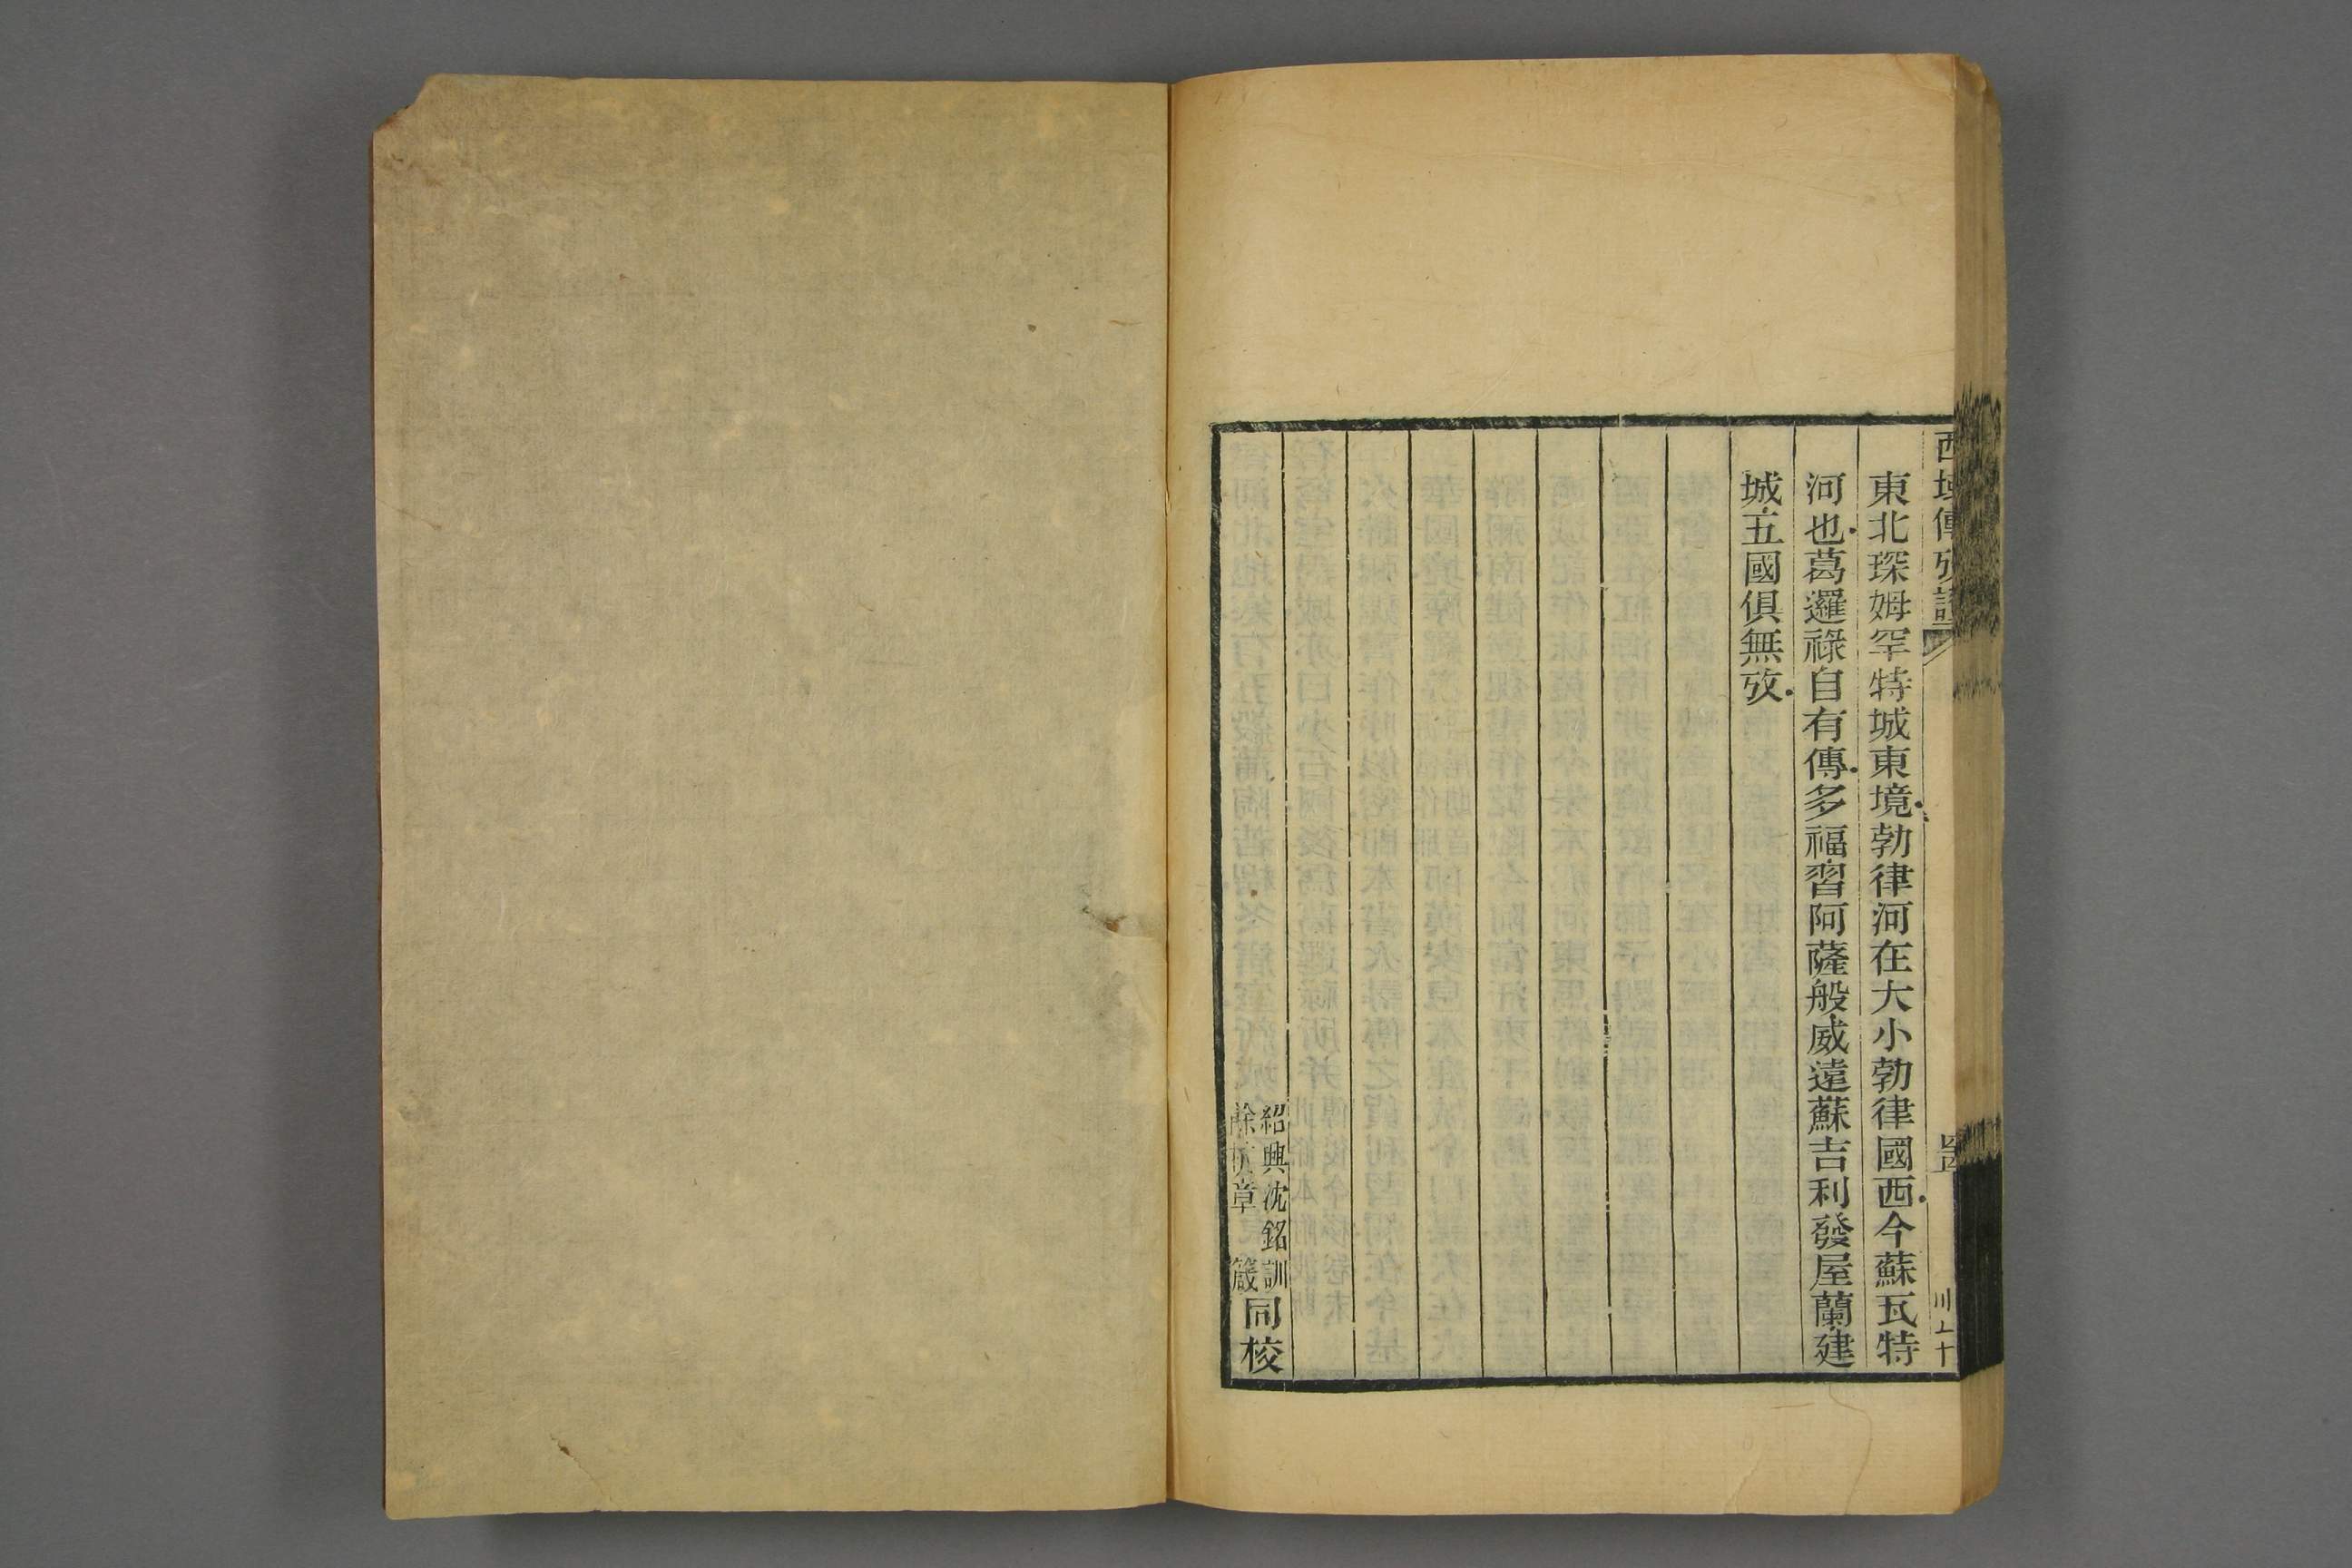 西域傳攷證
東北琛姆罕特城東境勃律河在大小勃律國西今蘇瓦特
河也葛邏祿自有傳多福習阿薩般威遠蘇吉利發屋蘭建
城五國俱無攷
紹興沈銘訓
餘杭章　箴
同校